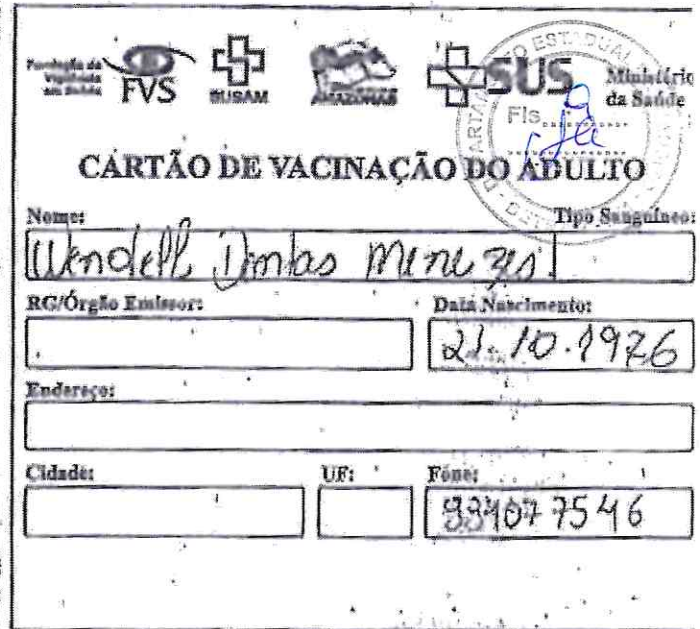 Fundação de
Vigilância
em Saúde
FVS
SUSAM
AMAZONAS
SUS
Ministério
da Saúde
ESTADUAL
Fls.
CARTÃO DE VACINAÇÃO DO ADULTO
Nome:
Tipo Sanguíneo:
Wendell Dantas Menezes
RG/Órgão Emissor:
Data Nascimento:
21.10.1976
Endereço:
Cidade:
UF:
Fone:
77546